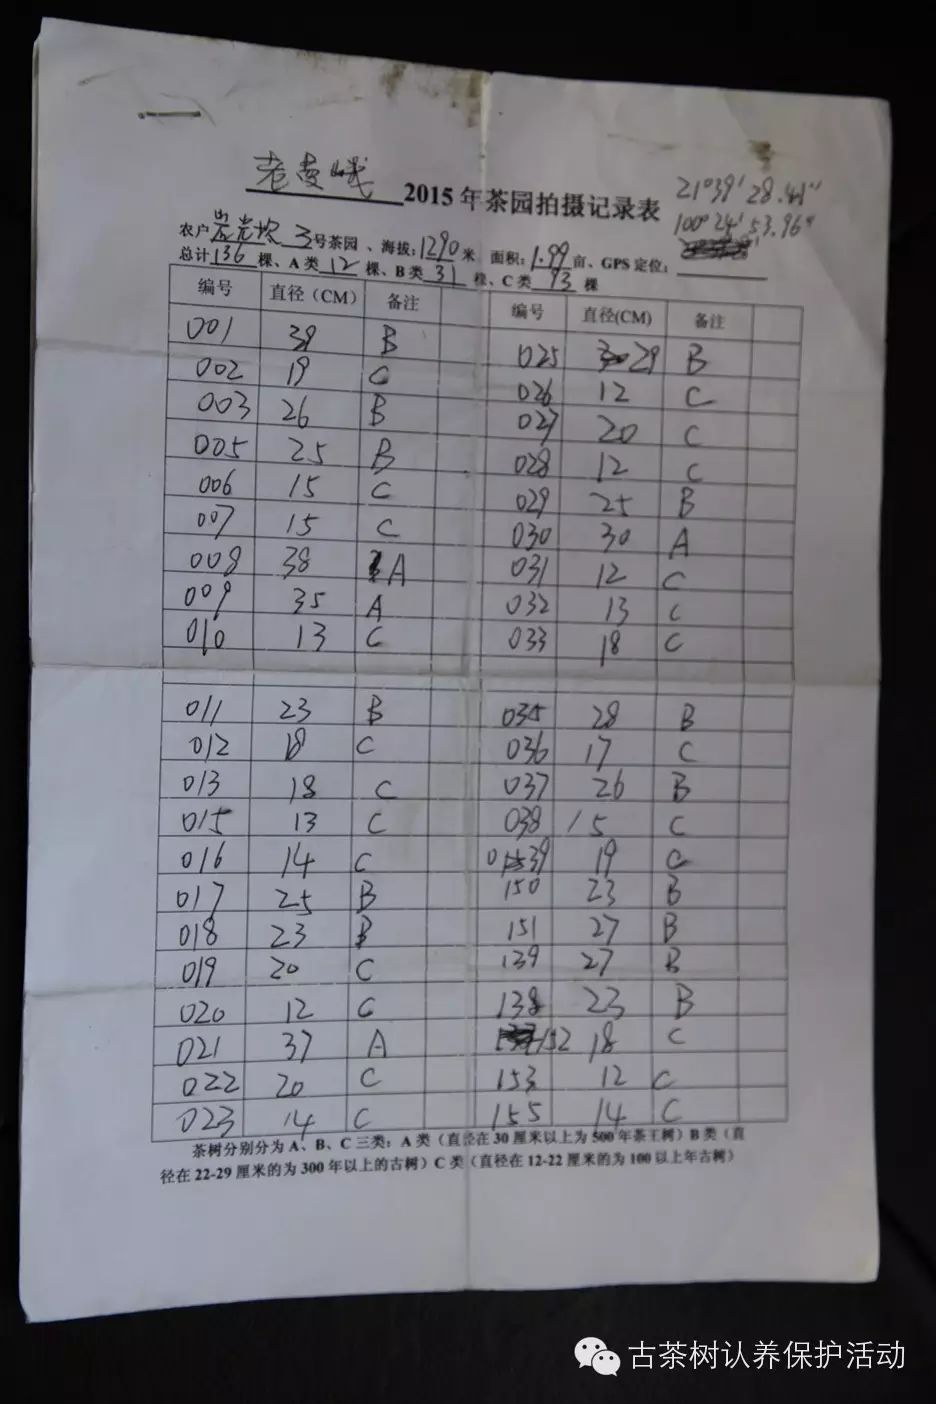 老曼峨 2015年茶园拍摄记录表 21°39′28.41″
100°24′53.96″
农户岩岩坎 3号茶园、海拔:1290米 面积:1.99亩、GPS定位:
总计136棵、A类12棵、B类31棵、C类93棵
编号 直径（CM） 备注 编号 直径(CM) 备注
001 39 B 025 29 B
002 19 C 026 12 C
003 26 B 027 20 C
005 25 B 028 12 C
006 15 C 029 25 B
007 15 C 030 30 A
008 38 A 031 12 C
009 35 A 032 13 C
010 13 C 033 18 C
011 23 B 035 28 B
012 18 C 036 17 C
013 18 C 037 26 B
015 13 C 038 15 C
016 14 C 039 19 C
017 25 B 150 23 B
018 23 B 151 27 B
019 20 C 139 27 B
020 12 C 138 23 B
021 37 A 152 18 C
022 20 C 153 12 C
023 14 C 155 14 C
茶树分别分为A、B、C三类：A类（直径在30厘米以上为500年茶王树）B类（直
径在22-29厘米的为300年以上的古树）C类（直径在12-22厘米的为100以上年古树）
古茶树认养保护活动